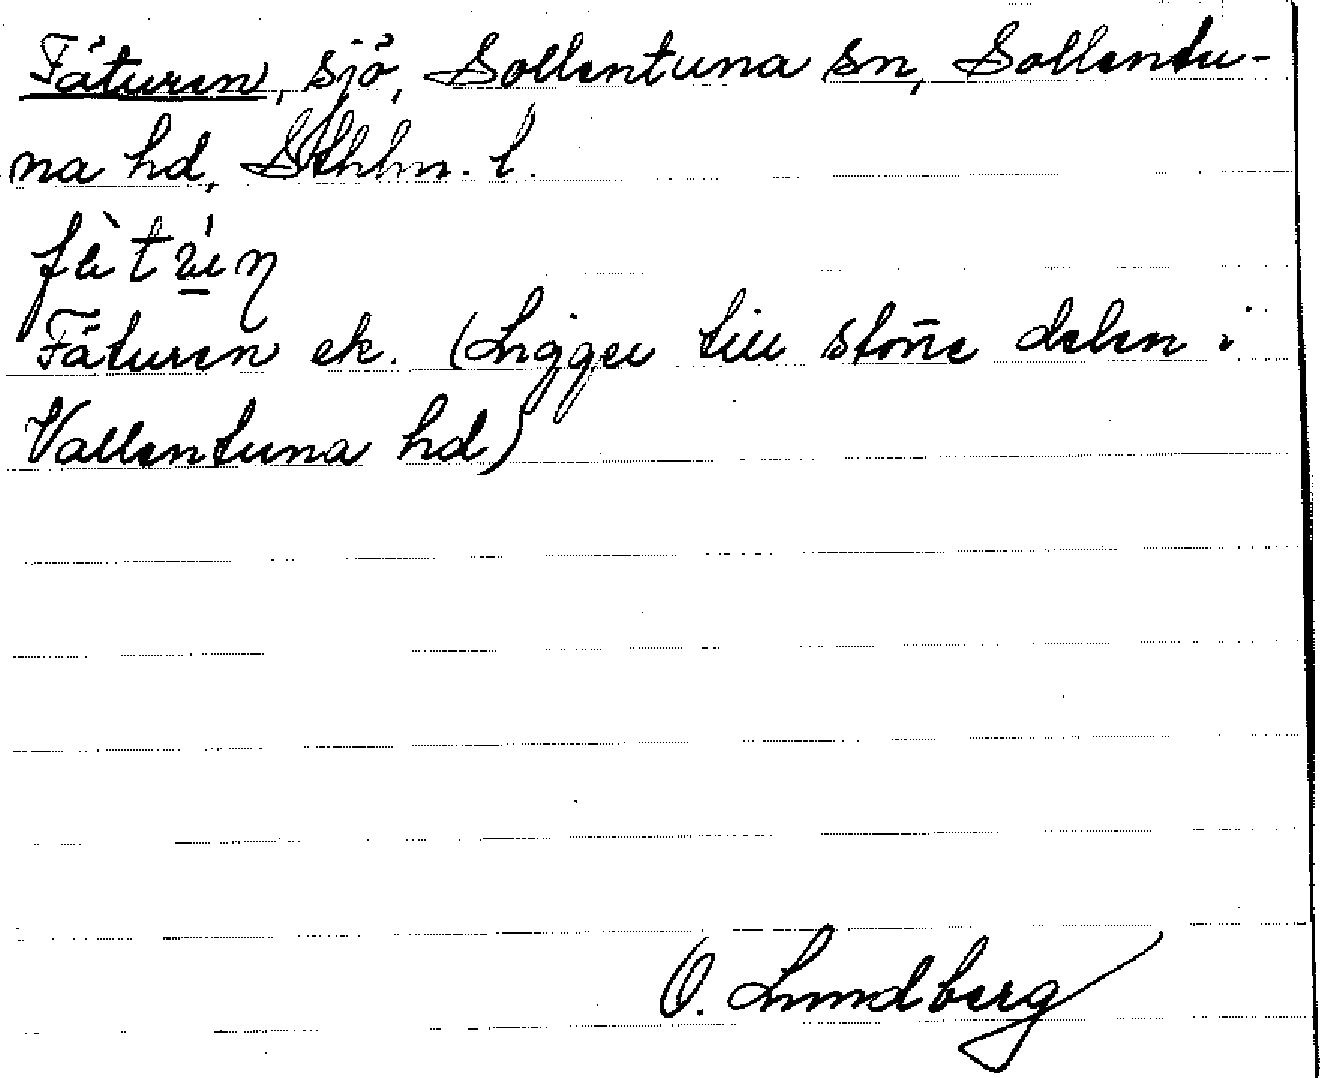 Fåturen, sjö, Sollentuna sn, Sollentu-
na hd, Sthlm. l.
Fåturen ek. (Ligger till större delen i
Vallentuna hd)
O. Lundberg